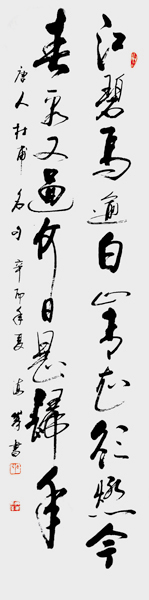 江碧鸟逾白山青花欲燃今
春看又過何日是歸年
唐人杜甫名句 辛卯年夏 書